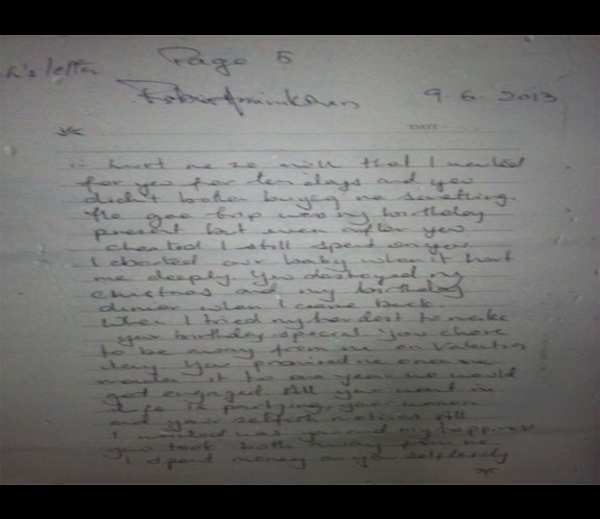 's letter
Page 5
9.6.2013
hurt me so much that I
for you for ten days and you
didn't bother buying me something.
The goa trip was my birthday
present but even after you
cheated I still spent on you
I aborted our baby when it hurt
me deeply. You destroyed my
christmas and my birthday
dinner when I came back.
When I tried my hardest to make
your birthday special you chose
to be away from me on Valentines
day You promised me once we
made it to one year we would
get engaged All you want in
life is partying, your women
and your selfish motives All
I wanted was you and my happiness
you took both away from me
I spent money on you selflessly